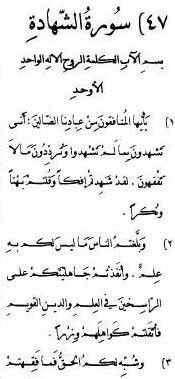 ٤٧) سورة الشهادة
بسم الآب الكلمة الروح الإله الواحد
الأوحد
١) يأيها المنافقون من عبادنا الضالين: أنى
تشهدون بما لم تشهدوا وترددون مالا
تفقهون. لقد شهدتم إفكا وقلتم بهتا
ونكرا.
٢) وبلغتم الناس ما ليس لكم به
علم. وأنفذتم جاهليتكم على
الراسخين في العلم والدين القويم
فأثقلتم كواهلهم وزرا.
٣) وشبه لكم الحق فما فقهتم